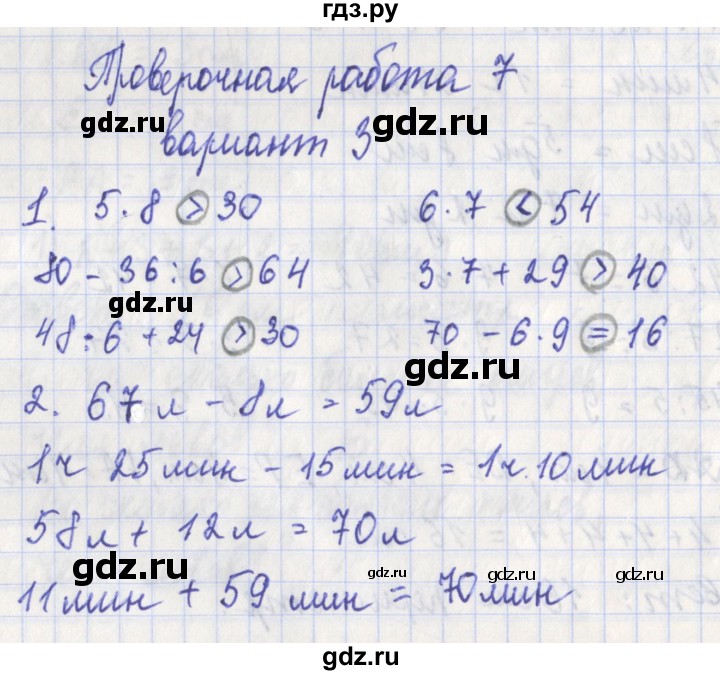 гдз.ру
Проверочная работа 7
gdz.ru gdz.ru
вариант 3
1. 5·8 > 30 6·7 < 54
80 - 36:6 > 64 3·7 + 29 > 40
gdz.ru
48:6 + 24 > 30 70 - 6·9 = 16
gdz.ru
2. 67л - 8л = 59л
1ч 25мин - 15мин = 1ч.10мин
58л + 12л = 70л
gdz.ru gdz.ru gdz.ru gdz.ru
11мин + 59мин = 70мин
gdz.ru